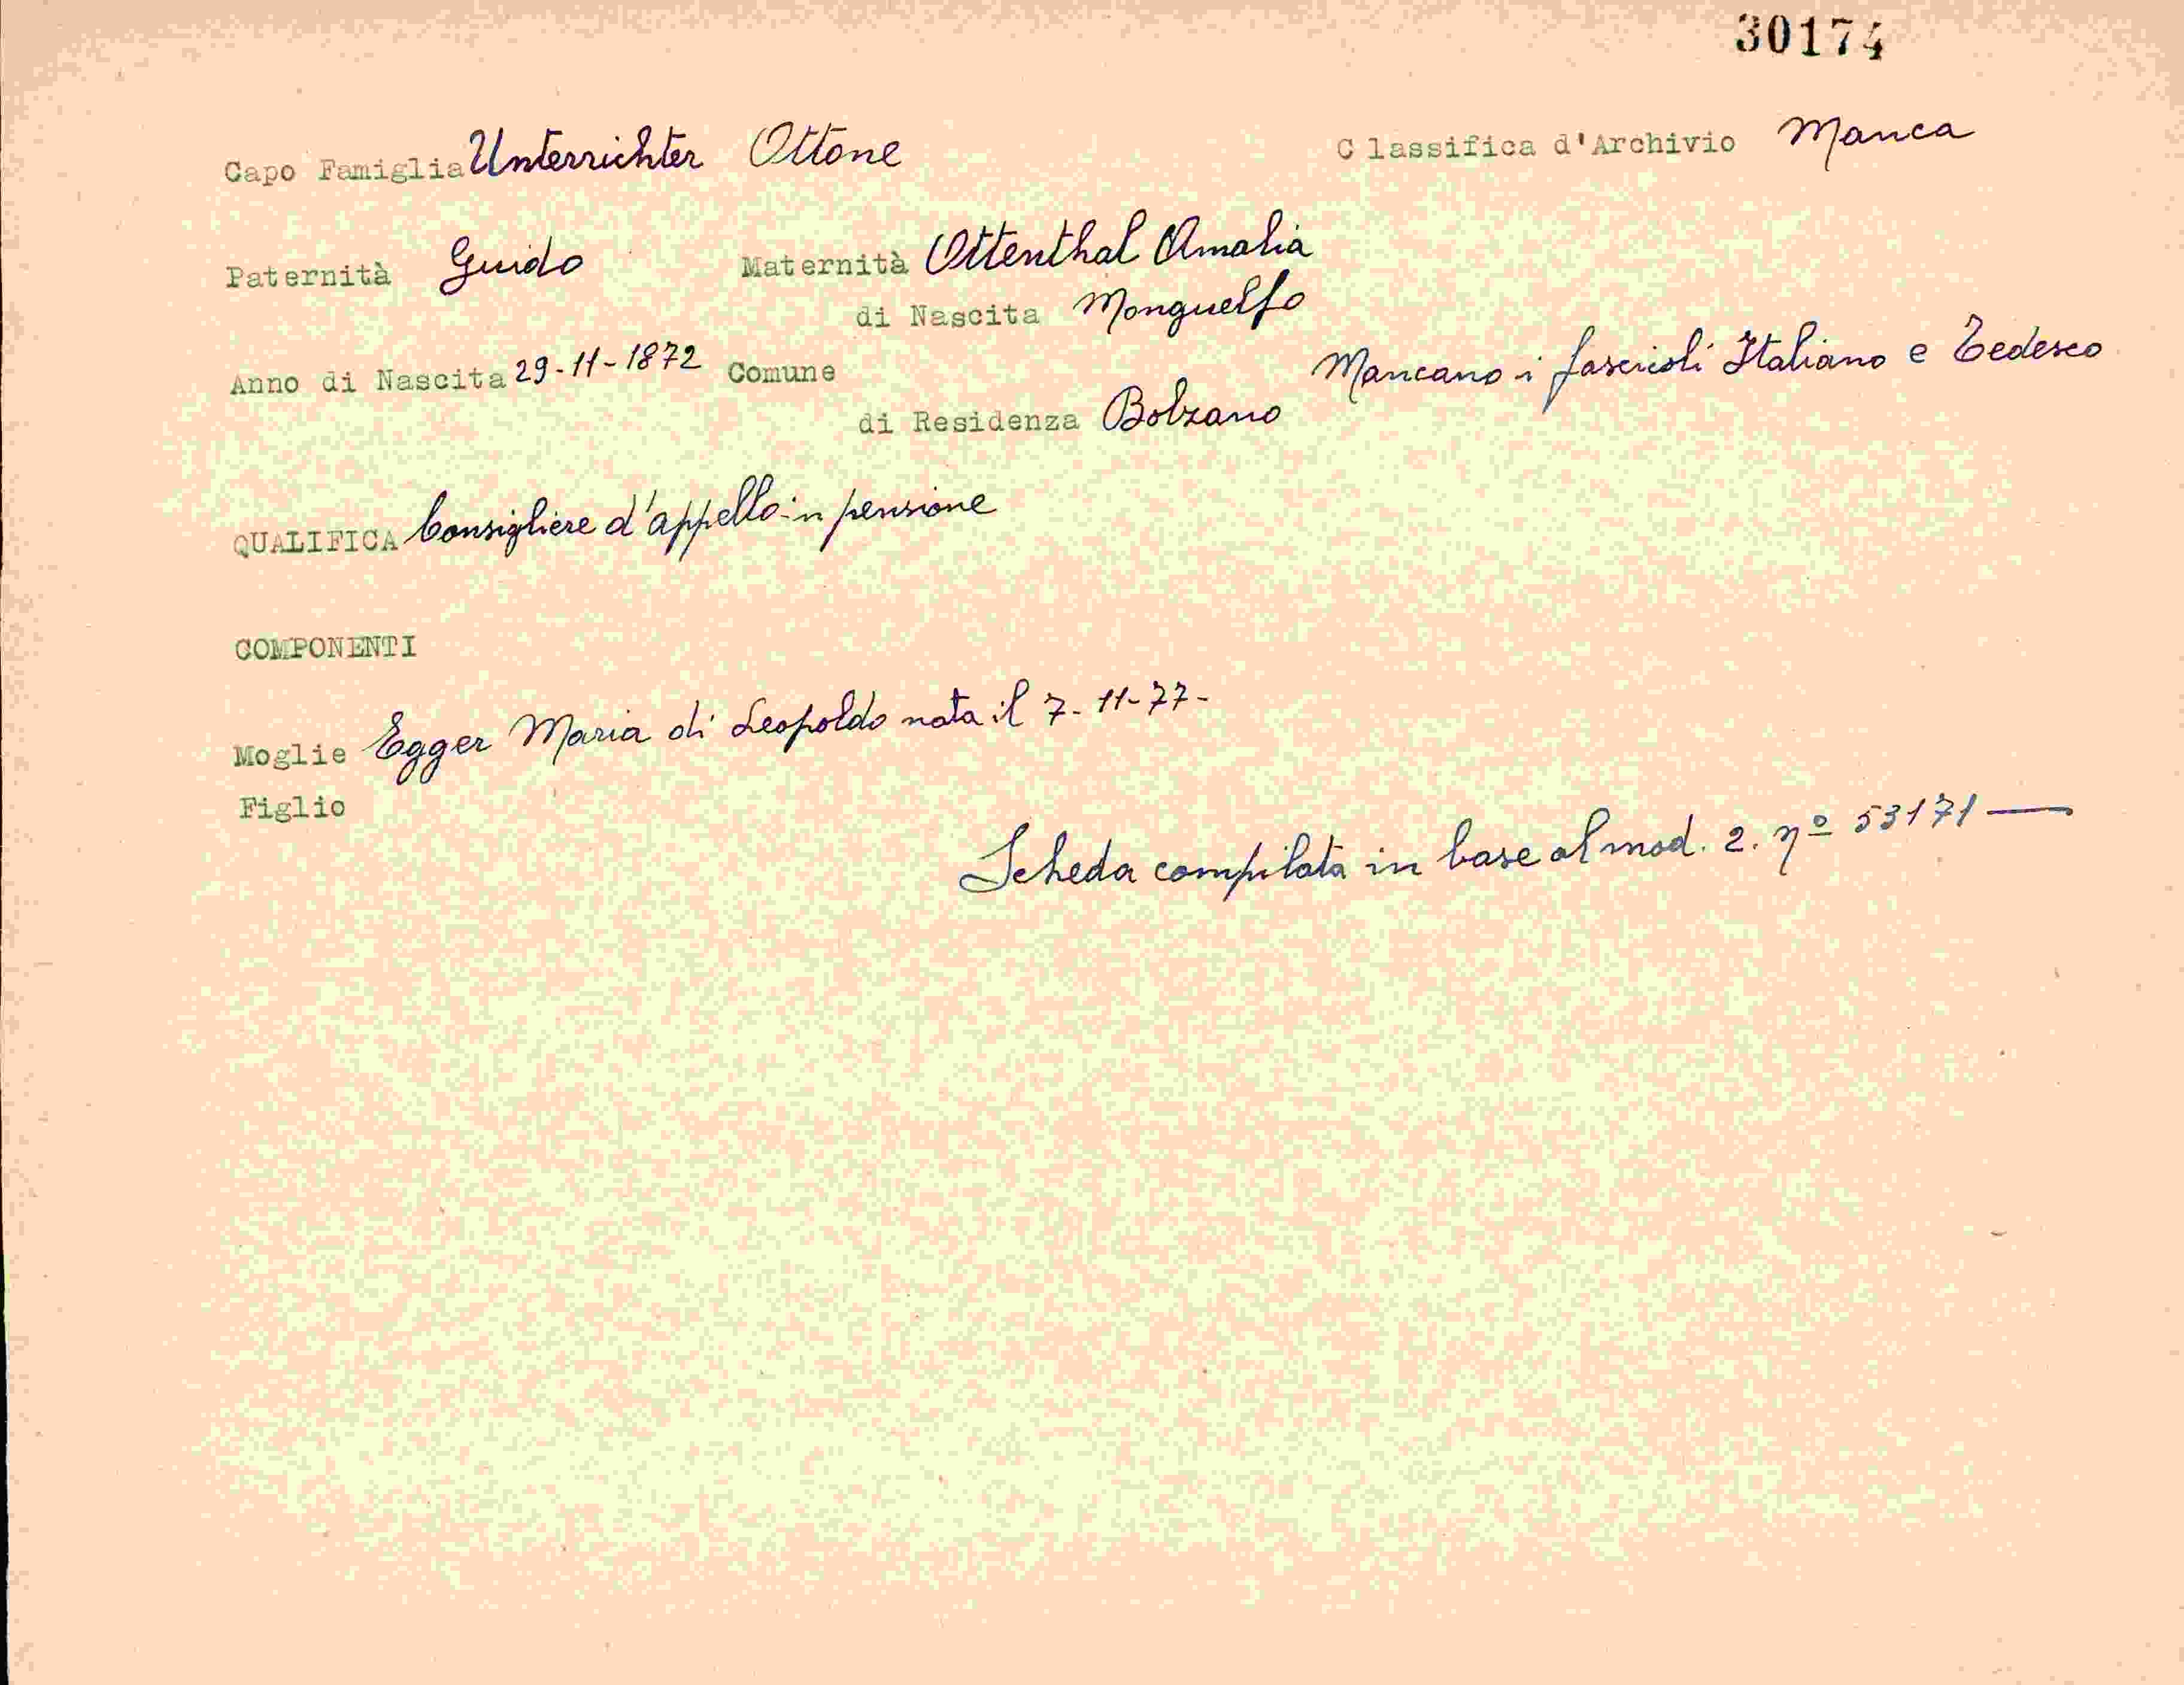 30174
Capo Famiglia Unterrichter Ottone Classifica d'Archivio Manca
Paternità Guido Maternità Ottenthal Amalia
di Nascita Monguelfo
Anno di Nascita 29-11-1872 Comune
Mancano i fascicoli Italiano e Tedesco
di Residenza Bolzano
QUALIFICA Consigliere d'appello in pensione
COMPONENTI
Moglie Egger Maria di Leopoldo nata il 7-11-77-
Figlio
Scheda compilata in base al mod. 2. nº 53171 —